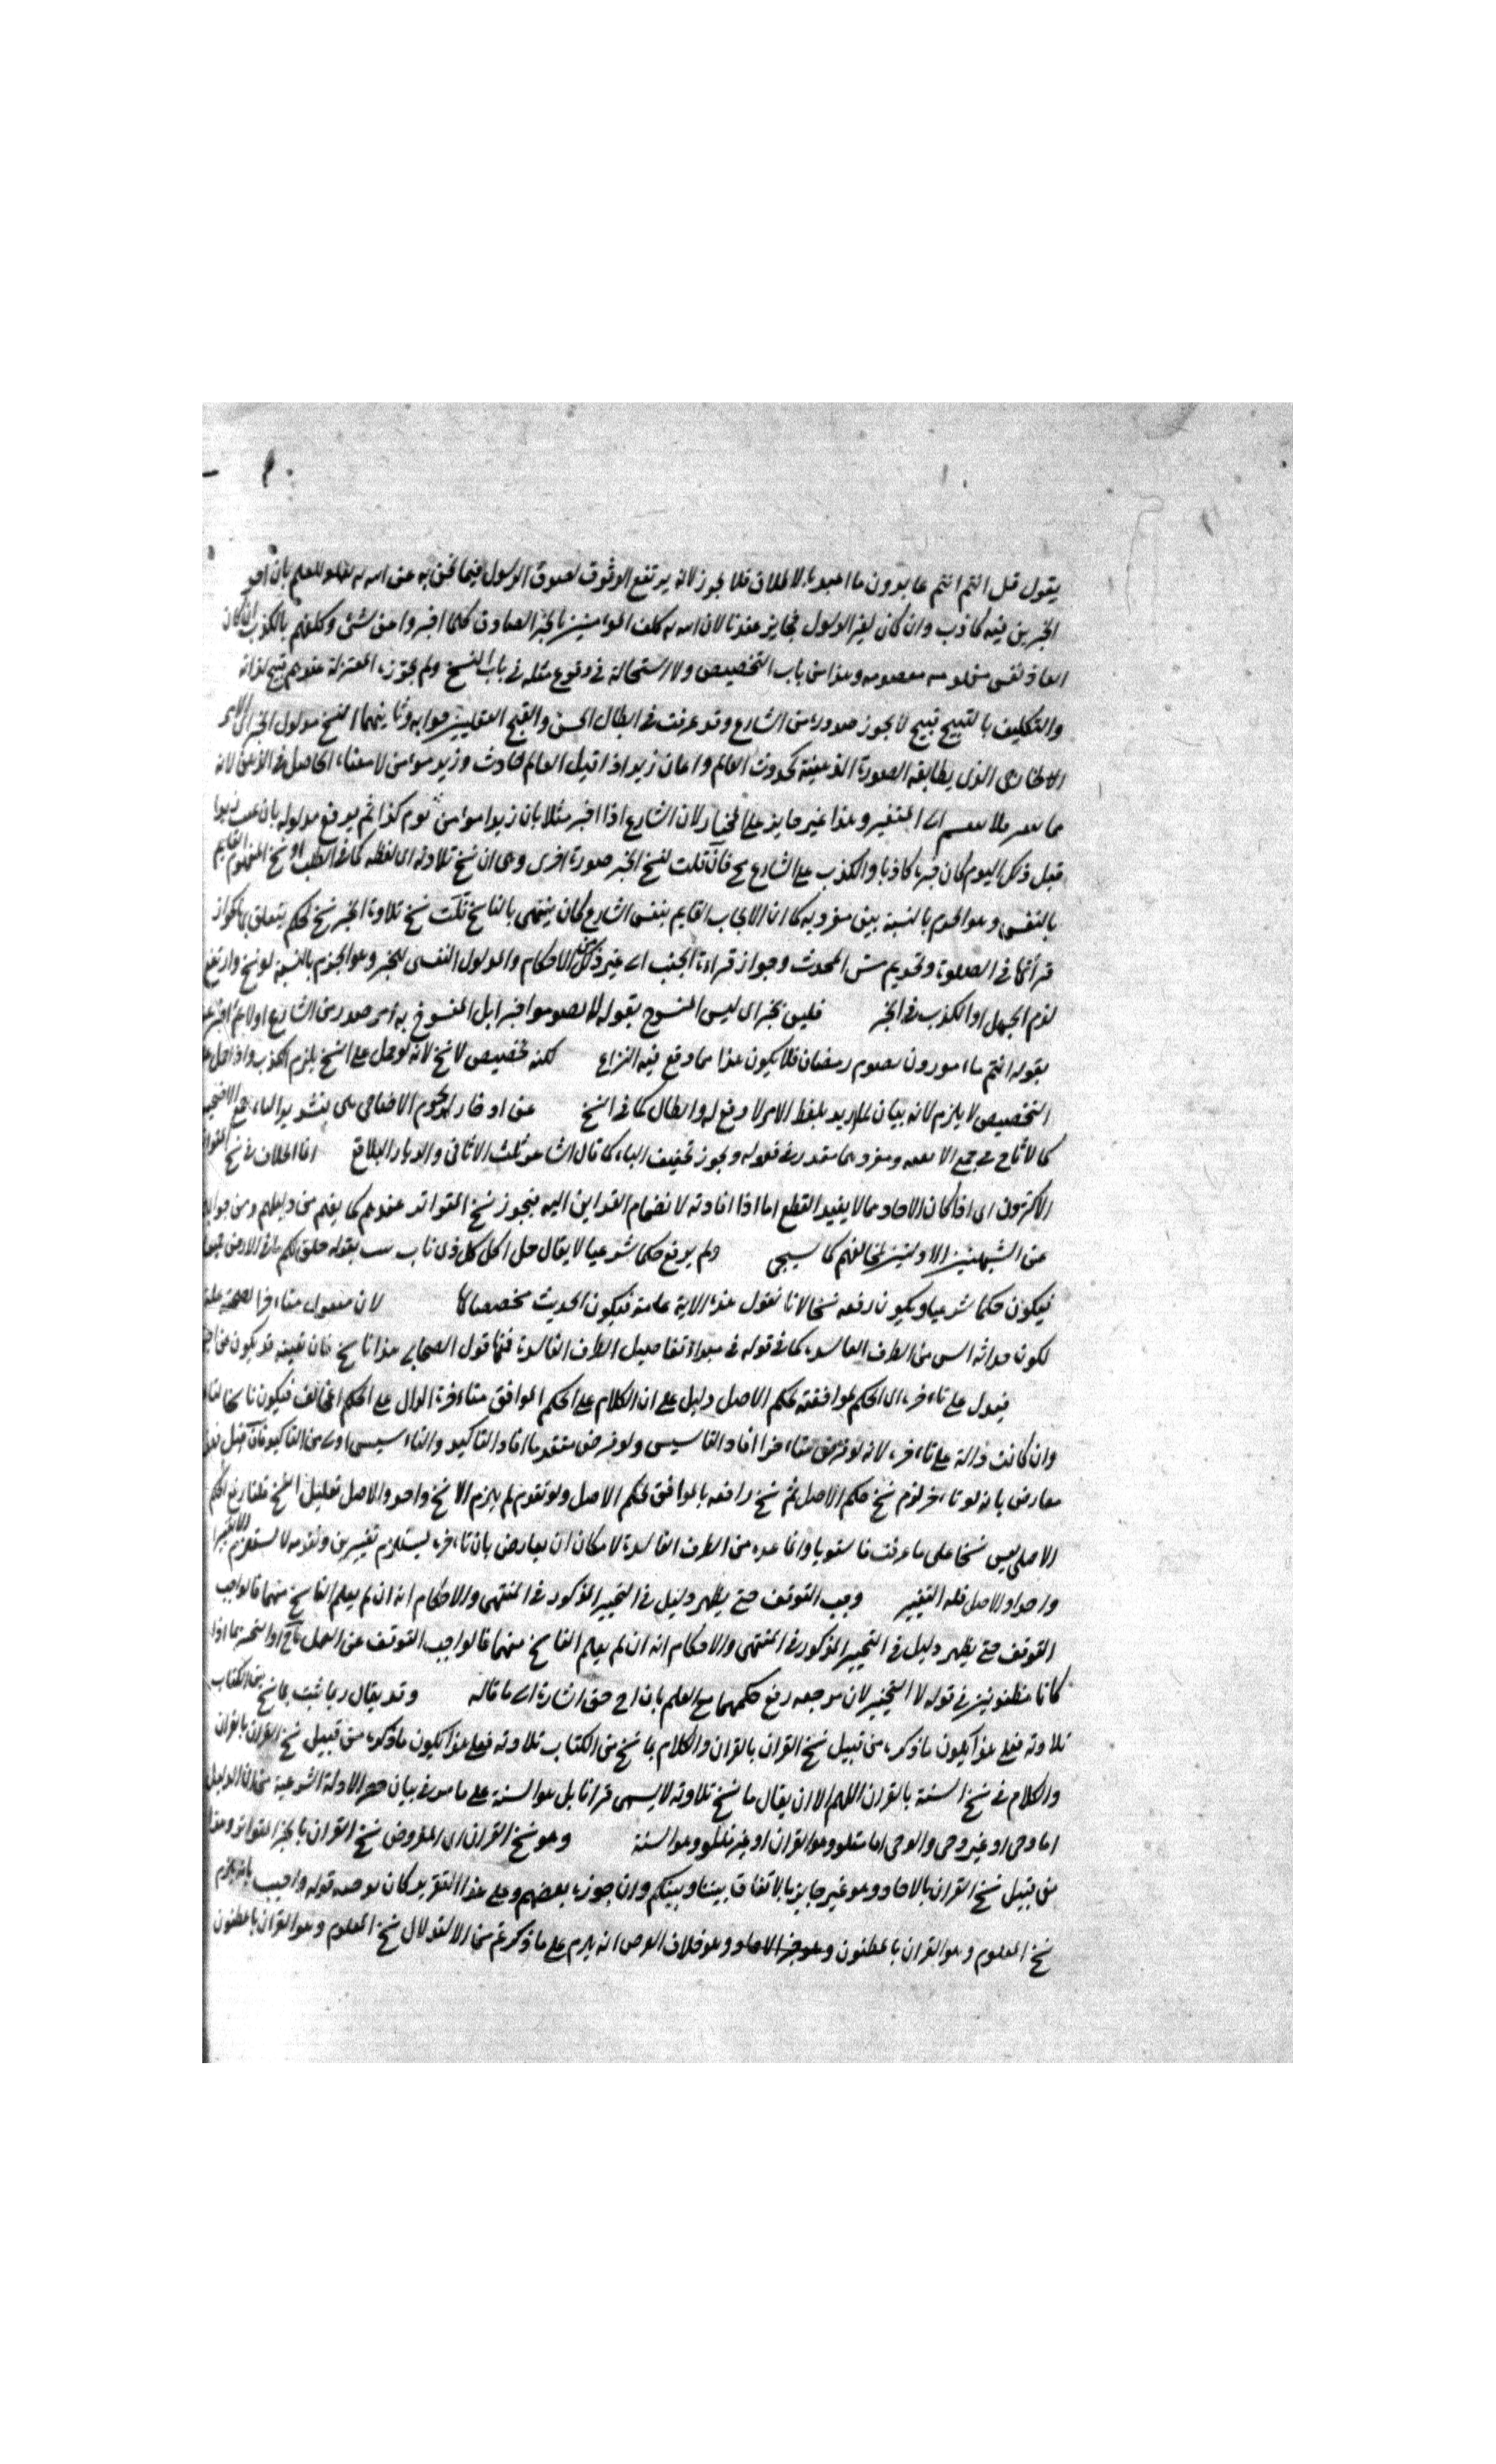 يقول قل انتم انتم عابدون ما اعبد بالاطلاق فلا يجوز لانه يرتفع الوثوق بصدق الرسول فيما نحن به عن الله للعلم بان احد
الخبرين فيه كاذب وان كان لغير الرسول فجايز عندنا لان الله كلف المومنين بالخبر الصادق كلما اخبروا عن شئ وكلفهم بالكذب
نفس معصومه وهذا من باب التخصيص ولا استحالة في وقوع مثله في باب النسخ ولم يجوزه المعتزلة عندهم قبيح لذاته
والتكليف بالقبيح قبيح لا يجوز صدوره من الشارع وقد عرفت في ابطال الحسن والقبح العقليين جوابه وثانيهما النسخ مدلول الخبر اي الامر
الخارجي الذي يطابقه الصورة الذهنية كحدوث العالم وايمان زيد اذا قيل العالم حادث وزيد مومن لا معناه الحاصل في الذهن لانه
المتغير وهذا غير جايز على المختار لان الشارع اذا اخبر مثلا بان زيدا مومن يوم كذا ثم يرفع مدلوله بان
قبل ذلك اليوم كان خبره كاذبا والكذب على الشارع مح فان قلت لنسخ الخبر صورة اخرى وهي ان نسخ تلاوته اي لفظه كما في الطلب او نسخ القايم
بالنفس وهو الجزم بالنسبة بين مفرديه كما ان الايجاب القايم بنفس الشارع كان ينتهي بالناسخ قلت نسخ تلاوة الخبر نسخ لحكم يتعلق بها كجواز
قرأتها في الصلوة وتحريم مس المحدث وجواز قراءة الجنب الى غير ذلك من الاحكام والمدلول النفسي للخبر وهو الجزم بالنسبة لو نسخ وارتفع
لزم الجهل او الكذب في الخبر فليس بخبر اي ليس المنسوخ بقوله لا تصوموا خبرا بل المنسوخ به امر صدر من الشارع اولا
بقوله انتم مامورون بصوم رمضان فلا يكون هذا مما وقع فيه النزاع لكنه تخصيص لا نسخ لانه لو حمل على النسخ يلزم الكذب واذا حمل
التخصيص لا يلزم لانه بيان لما اريد بلفظ الامر لا رفع له وابطال كما في النسخ عن ادخار لحوم الاضاحي هي بتشديد الياء جمع الاضحية
كالاثافي في جمع الاثفية ومفردهما مقدر في فعوله ويجوز تخفيف الياء كما قال الشاعر ثلث الاثافي والديار البلاقع انما الخلاف في نسخ
الاكثرون اي اذا كان الاحاد مما لا يفيد القطع اما اذا افادته لانضمام القراين اليه فيجوز نسخ المتواتر عندهم كما يفهم من دليلهم ومن جوابهم
عن الشبهتين الاوليين لمخالفهم كما سيجي ولم يرفع حكما شرعيا لا يقال حل اكل كل ذي ناب بقوله خلق لكم ما في الارض جميعا
فيكون حكما شرعيا ويكون رفعه نسخا لانا نقول هذه الاية عامة فيكون الحديث مخصصا لها لان منقول متاخر الصحبة
لكون حداثة السن من الطرف الفاسدة كما في قوله في مبداء تفاصيل الطرف الفاسدة فمنها قول الصحابي هذا ناسخ فان تعينه قد يكون عن
فيدل على تاخره اي الحكم لموافقته لحكم الاصل دليل على ان الكلام على الحكم الموافق متاخرة الدال على الحكم المخالف فيكون ناسخا
وان كانت دالة على تاخره لانه لو فرض متاخرا افاد التاسيس ولو فرض متقدما افاد التاكيد والتاسيس اولى من التاكيد فان قيل
معارض بانه لو تاخر لزم نسخ حكم الاصل ثم نسخ رافعه بالموافق لحكم الاصل ولو تقدم لم يلزم الا نسخ واحد والاصل تقليل النسخ قلنا رفع الحكم
الاصلي ليس نسخا على ما عرفت فاستويا وانما عده من الطرف الفاسدة لامكان ان يعارض بان تاخره يستلزم تغييرين وتقدمه لا يستلزم الا تغييرا
واحدا والاصل قلة التغيير وجب التوقف حتى يظهر دليل في التخيير المذكور في المنتهى والاحكام انه ان لم يعلم الناسخ منهما فالواجب
التوقف حتى يظهر دليل في التخيير المذكور في المنتهى والاحكام انه ان لم يعلم الناسخ منهما فالواجب التوقف عن العمل
كانا مظنونين في قوله لا التخيير لان مرجعه رفع حكمهما مع العلم بان احدهما حق اشارة الى ما قاله وقد يقال ربما ثبت بما نسخ من الكتاب
تلاوته فعلى هذا يكون ما ذكره من قبيل نسخ القران بالقران والكلام بما نسخ من الكتاب تلاوته فعلى هذا يكون ما ذكره من قبيل نسخ القران بالقران
والكلام في نسخ السنة بالقران اللهم الا ان يقال ما نسخ تلاوته لا يسمى قرانا بل هو السنة على ما مر في بيان حصر الادلة الشرعية من ان الدليل
اما وحي او غير وحي والوحي اما متلو وهو القران او غير متلو وهو السنة وهو نسخ القران اي المفروض نسخ القران بالخبر المتواتر وهذا
من قبيل نسخ القران بالاحاد وهو غير جايز بالاتفاق بيننا وبينكم وان جوزه بعضهم وعلى هذا التقرير كان قوله واجيب بانه يلزم
نسخ المعلوم وهو القران بالمظنون وهو خبر الاحاد وهو خلاف الفرض انه يلزم على ما ذكرتم من الاستدلال نسخ المعلوم وهو القران بالمظنون